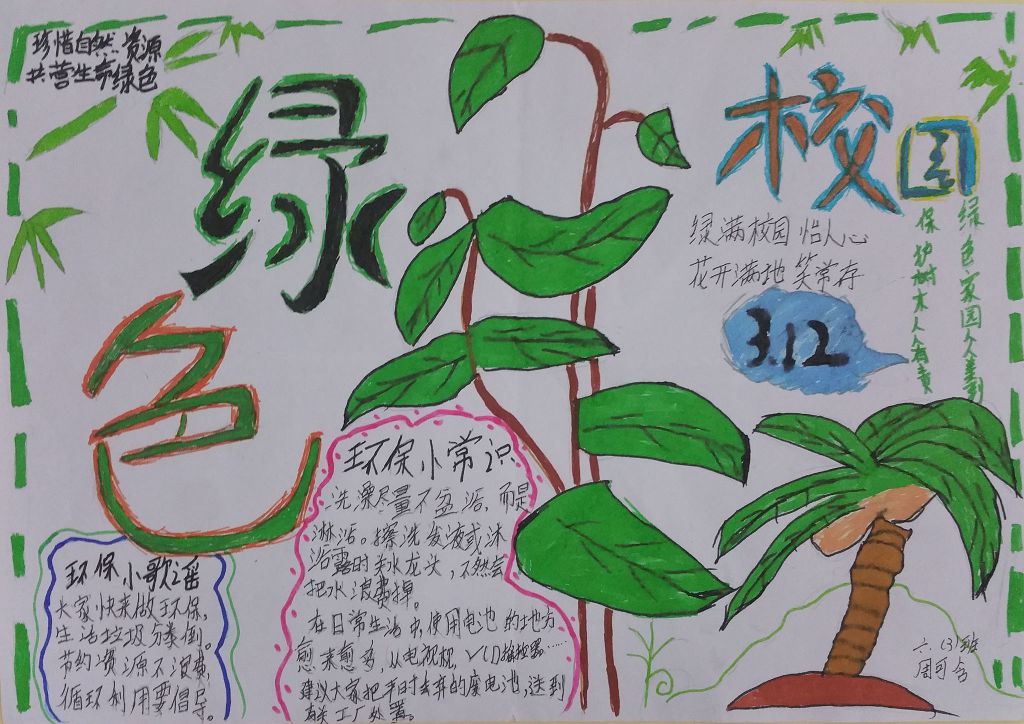 珍惜自然资源
共营生命绿色
绿色
校园
绿满校园怡人心
花开满地笑常存
绿色家园
保护树木人人有责
3.12
环保小常识
洗澡尽量不盆浴,而是
淋浴。擦洗发液或沐
浴露时关水龙头,不然会
把水浪费掉。
在日常生活中,使用电池的地方
愈来愈多,从电视机,
建议大家把平时丢弃的废电池,送到
有关工厂处置。
环保小歌谣
大家快来做环保,
生活垃圾分类倒。
节约资源不浪费,
循环利用要倡导。
六(3)班
周可